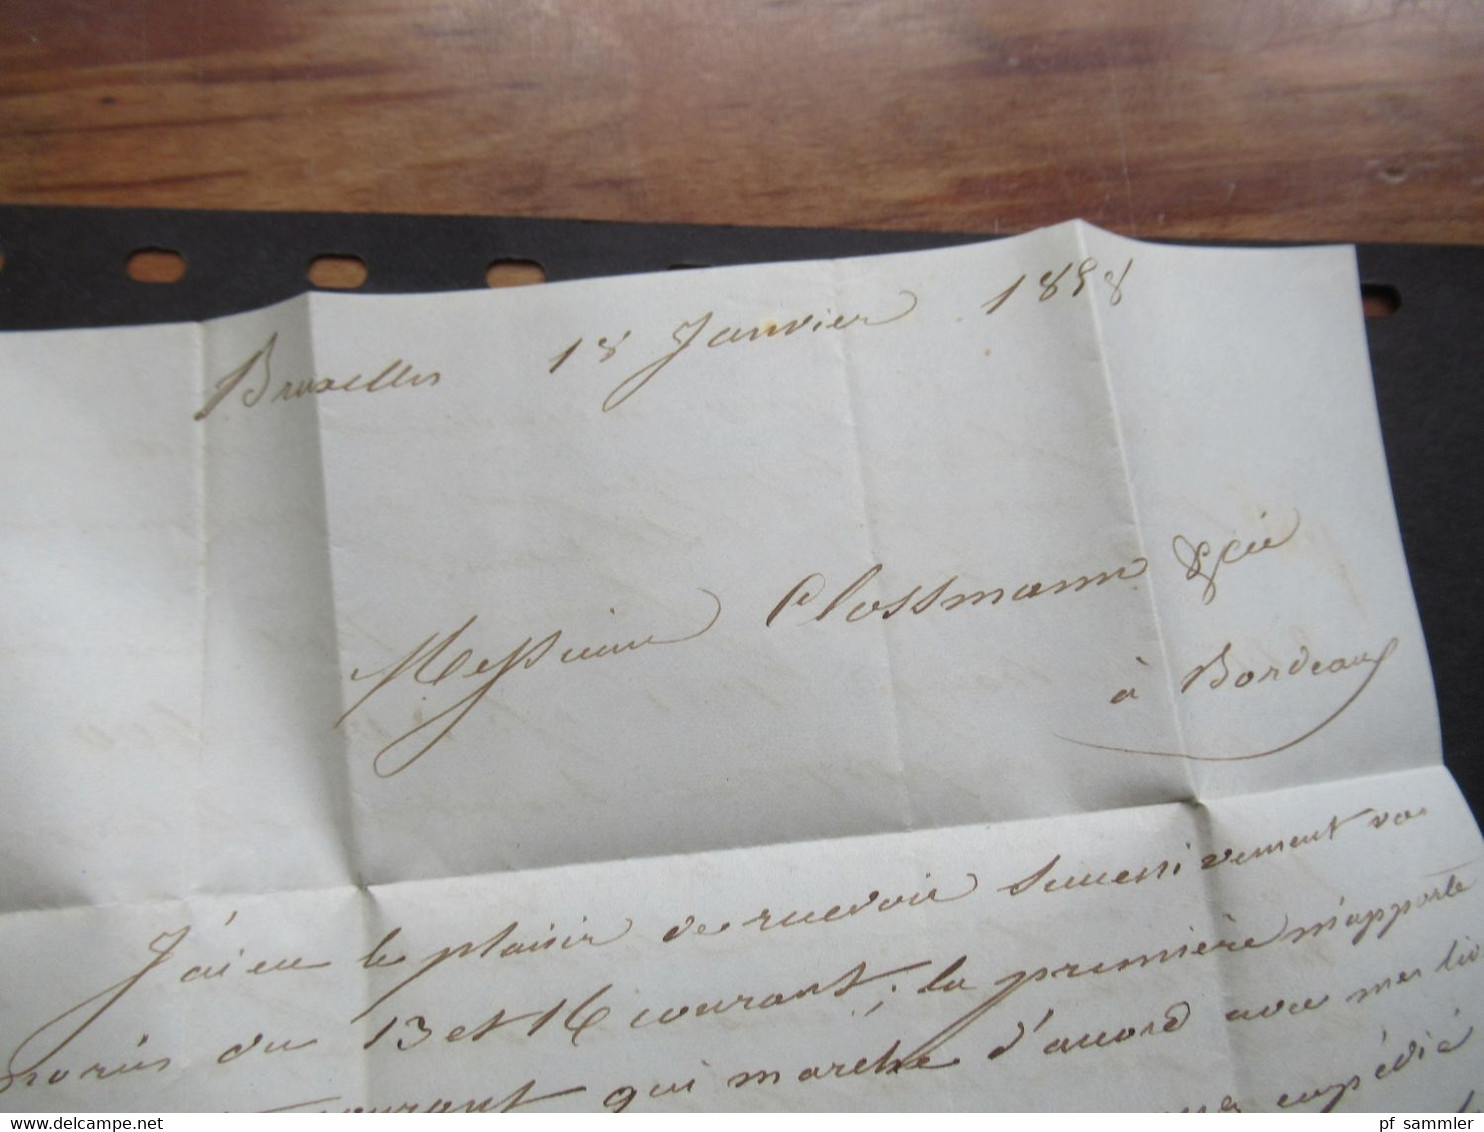 Bruxelles 18 Janvier 1858
Messieurs Clossmann & Cie
à Bordeaux
J'ai eu le plaisir de recevoir successivement vos
honorées du 13 et 16 courant; la première m'apporte
courant qui marche d'accord avec mes liv
expédié
pf sammler